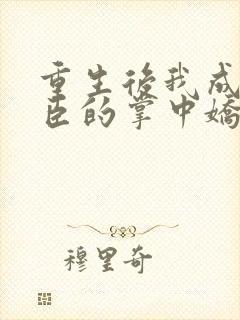 重生後我成
臣的掌中嬌
穆里奇